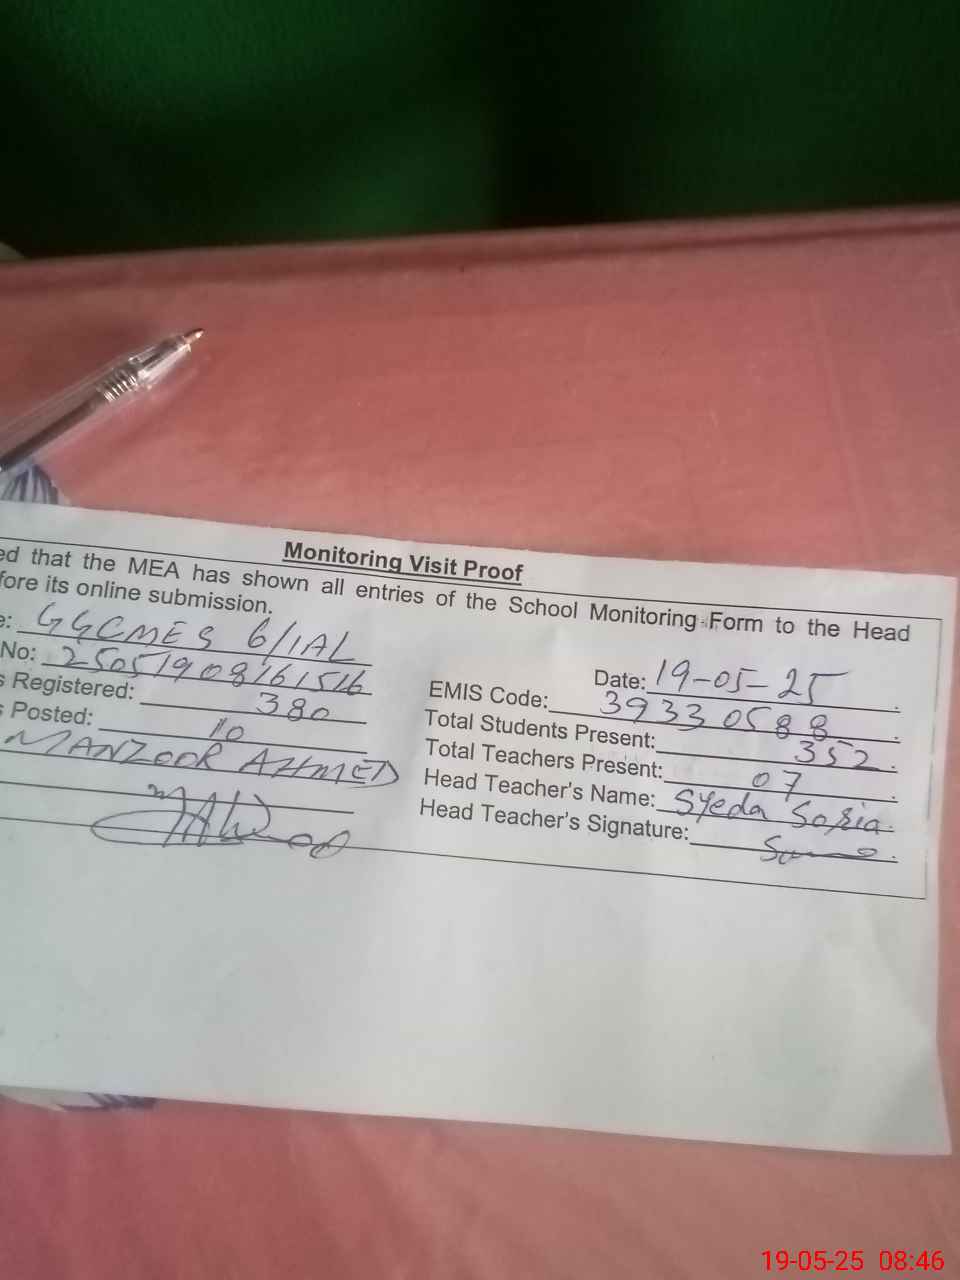 Monitoring Visit Proof
ed that the MEA has shown all entries of the School Monitoring Form to the Head
fore its online submission.
e: GGCMES 6/1AL
Date: 19-05-25
No: 25051908161516
EMIS Code: 39330588
s Registered: 380
Total Students Present: 352
s Posted: 10
Total Teachers Present: 07
MANZOOR AHMED
Head Teacher's Name: Syeda Sofia
Head Teacher's Signature:
19-05-25 08:46